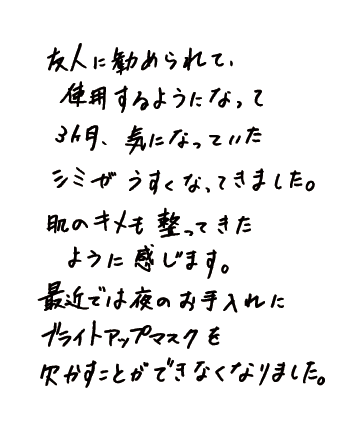 友人に勧められて、
使用するようになって
3ヶ月、気になっていた
シミがうすくなってきました。
肌のキメも整ってきた
ように感じます。
最近では夜のお手入れに
ブライトアップマスクを
欠かすことができなくなりました。